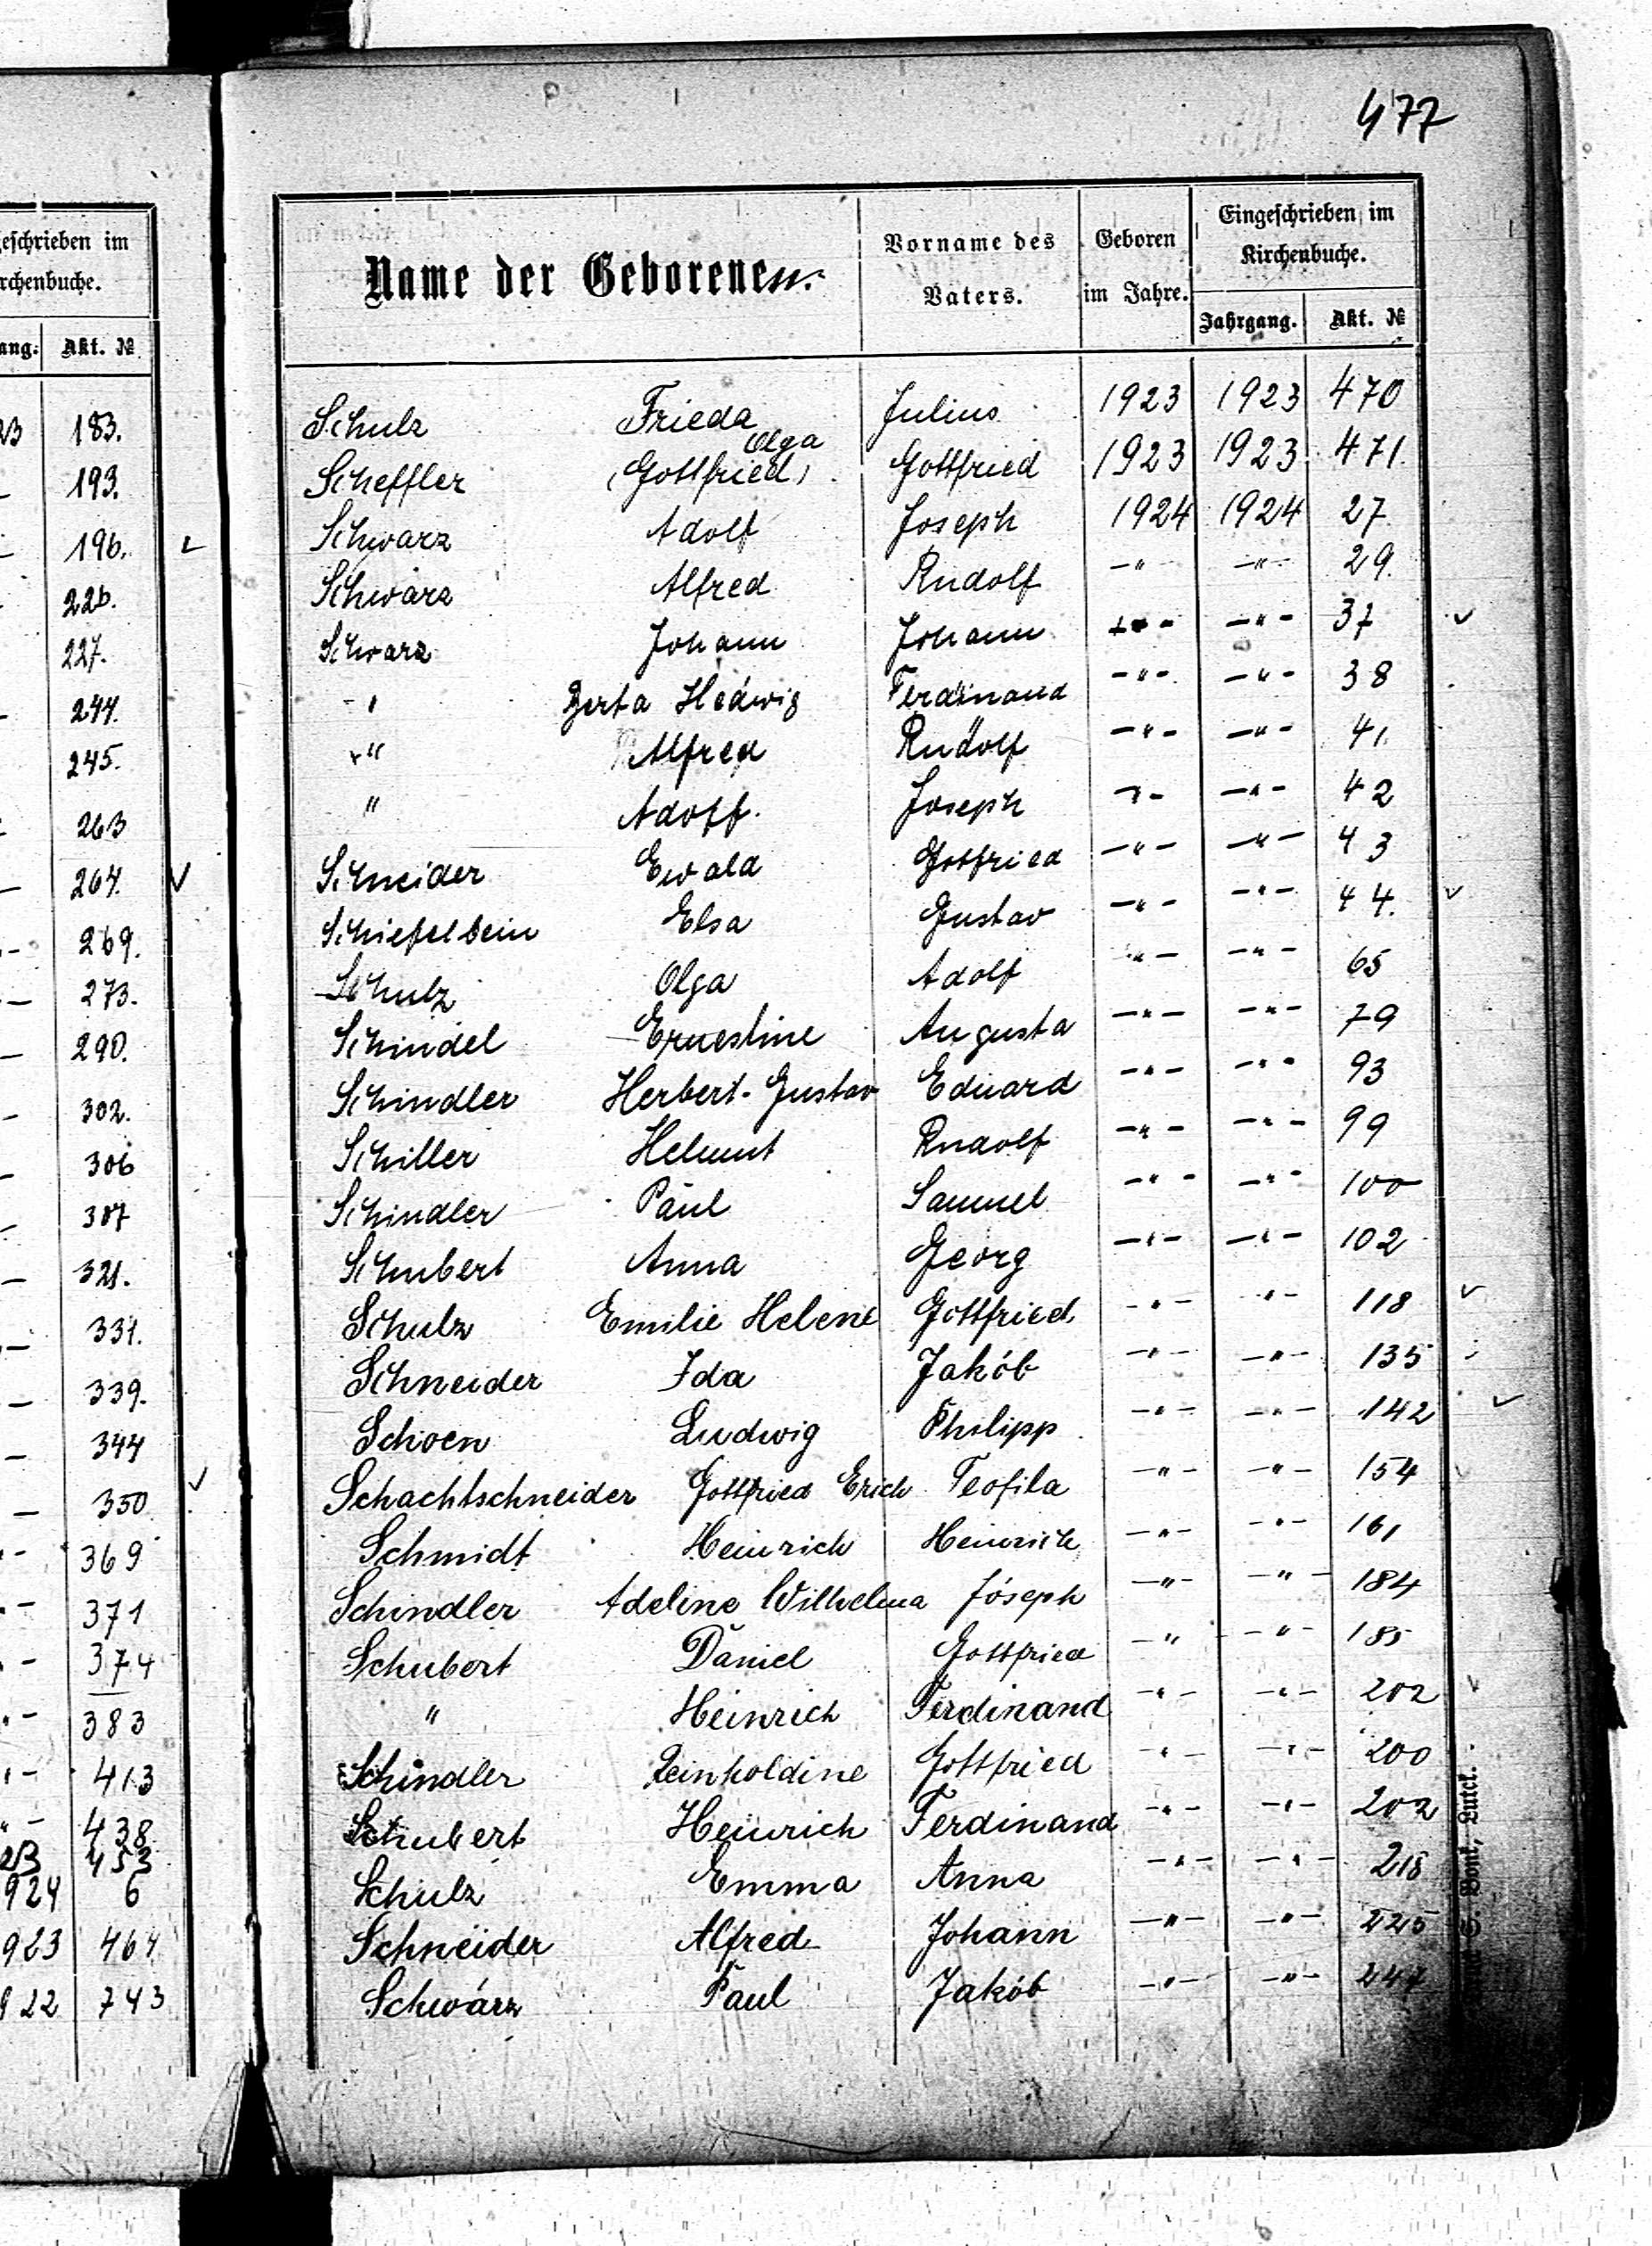 477
Name der Geborenen.
Vorname des Vaters.
Geboren im Jahre.
Eingeschrieben im Kirchenbuche.
Jahrgang. Akt. №
Schulz Frieda Julius 1923 1923 470
Olga
Scheffler (Gottfried) Gottfried 1923 1923 471.
Schwarz Adolf Joseph 1924 1924 27
Schwarz Alfred Rudolf -"- -"- 29.
Schwarz Johann Johann -"- -"- 37 ✓
-" Berta Hedwig Ferdinand -"- -"- 38
-" Alfred Rudolf -"- -"- 41.
" Adolf. Joseph -"- -"- 42
Schneider Ewald Gottfried -"- -"- 43
Schiefelbein Elsa Gustav -"- -"- 44. ✓
Schulz Olga Adolf -"- -"- 65
Schindel Ernestine Augusta -"- -"- 79
Schindler Herbert-Gustav Eduard -"- -"- 93
Schiller Helmut Rudolf -"- -"- 99
Schindler Paul Samuel -"- -"- 100
Schubert Anna Georg -"- -"- 102
Schulz Emilie Helene Gottfried -"- -"- 118 ✓
Schneider Ida Jakób -"- -"- 135
Schoen Ludwig Philipp -"- -"- 142 ✓
Schachtschneider Gottfried Erich Teofila -"- -"- 154
Schmidt Heinrich Heinrich -"- -"- 161
Schindler Adeline Wilhelma Jóseph -"- -"- 184
Schubert Daniel Gottfried -"- -"- 185
" Heinrich Ferdinand -"- -"- 202 ✓
Schindler Reinholdine Gottfried -"- -"- 200
Schubert Heinrich Ferdinand -"- -"- 202
Schulz Emma Anna -"- -"- 218
Schneider Alfred Johann -"- -"- 225
Schwarz Paul Jakób -"- -"- 247
eschrieben im
rchenbuche.
ang. Akt. №
23 183.
193.
196. ✓
226.
227.
244.
245.
263
264. ✓
269.
273.
290.
302.
306
307
321.
331.
339.
344
350 ✓
369
371
374
383
413
438
23 453
924 6
923 464
922 743